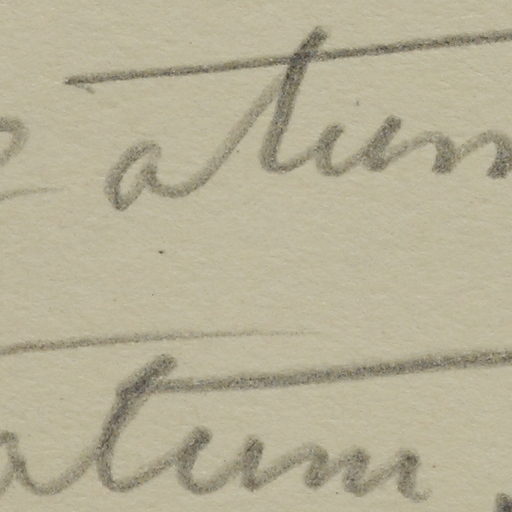 atum
atum